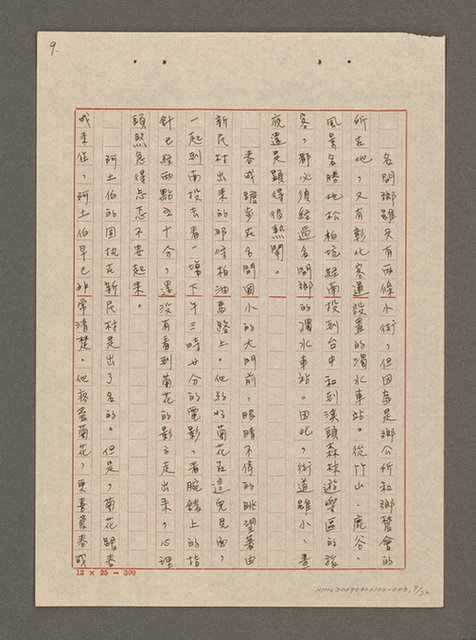 9.
名間鄉雖只有兩條小街，但因為是鄉公所和鄉農會的
所在地，又有彰化客運設置的濁水車站。從竹山、鹿谷、
風景名勝地松柏坑經南投到台中和到溪頭森林遊樂區的旅
客，都必須經過名間鄉的濁水車站。因此，街道雖小，晝
夜還是顯得很熱鬧。
春成躑步在名間國小的大門前，眼睛不停的眺望著由
新民村出來的那條柏油馬路上。他約好菊花在這兒見面，
一起到南投去看一場下午三時廿分的電影，看腕錶上的指
針已經兩點五十分，還沒有看到菊花的影子走出來，心裡
頭煞急得忐忑不安起來。
阿土伯的固執在新民村是出了名的。但是，菊花跟春
成來往，阿土伯早已非常清楚。他疼愛菊花，更喜愛春成
12 × 25 = 300